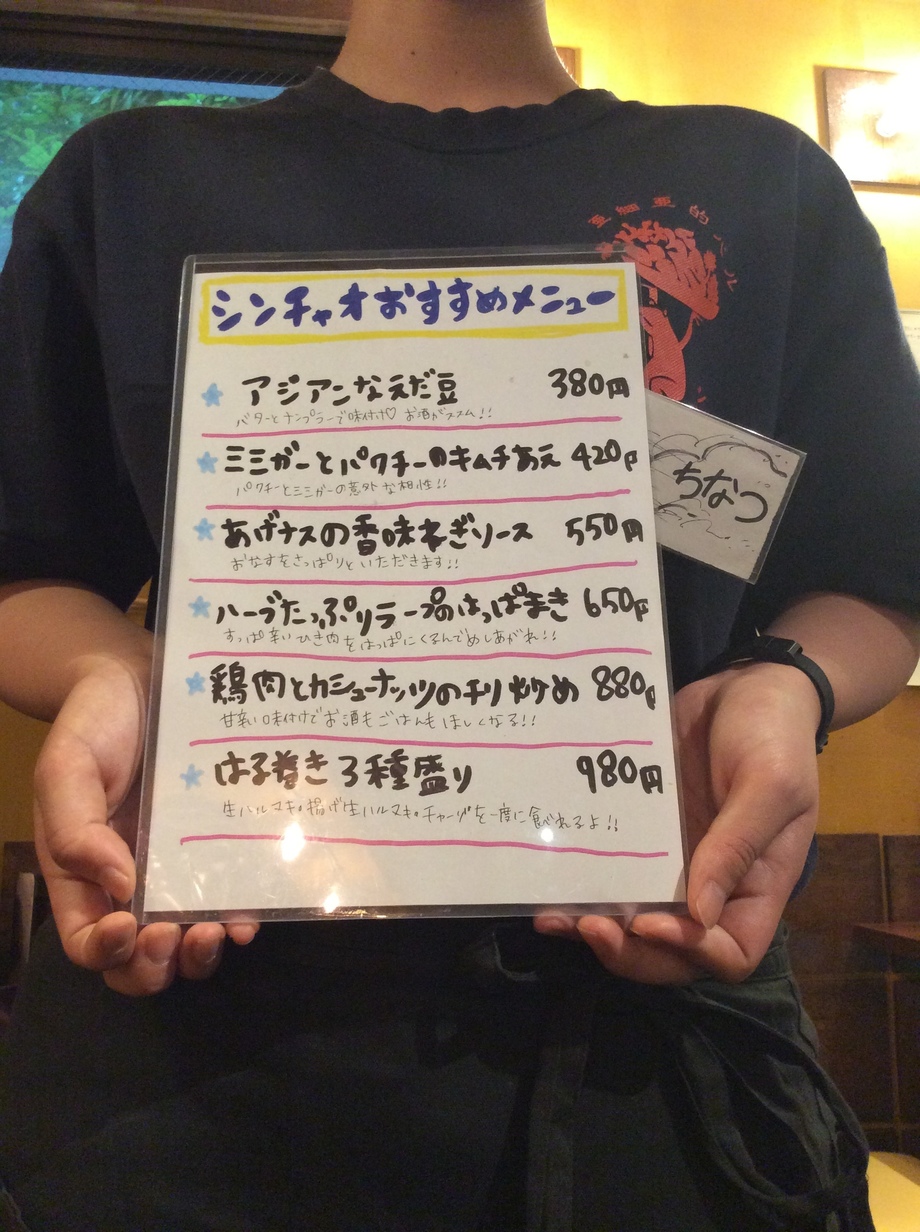 亜細亜的
シンチャオおすすめメニュー
アジアンなえだ豆 380円
バターとナンプラーで味付け♡ お酒がススム!!
ミミガーとパクチーのキムチあえ 420円
パクチーとミミガーの意外な相性!!
ちなつ
あげナスの香味ねぎソース 550円
おなすをさっぱりといただきます!!
ハーブたっぷりラープのはっぱまき 650円
すっぱ辛いひき肉をはっぱにくるんでめしあがれ!!
鶏肉とカシューナッツのチリ炒め 880円
甘辛い味付けでお酒もごはんもほしくなる!!
はる巻き3種盛り 980円
生ハルマキ・揚げ生ハルマキ・チャーゾを一度に食べれるよ!!